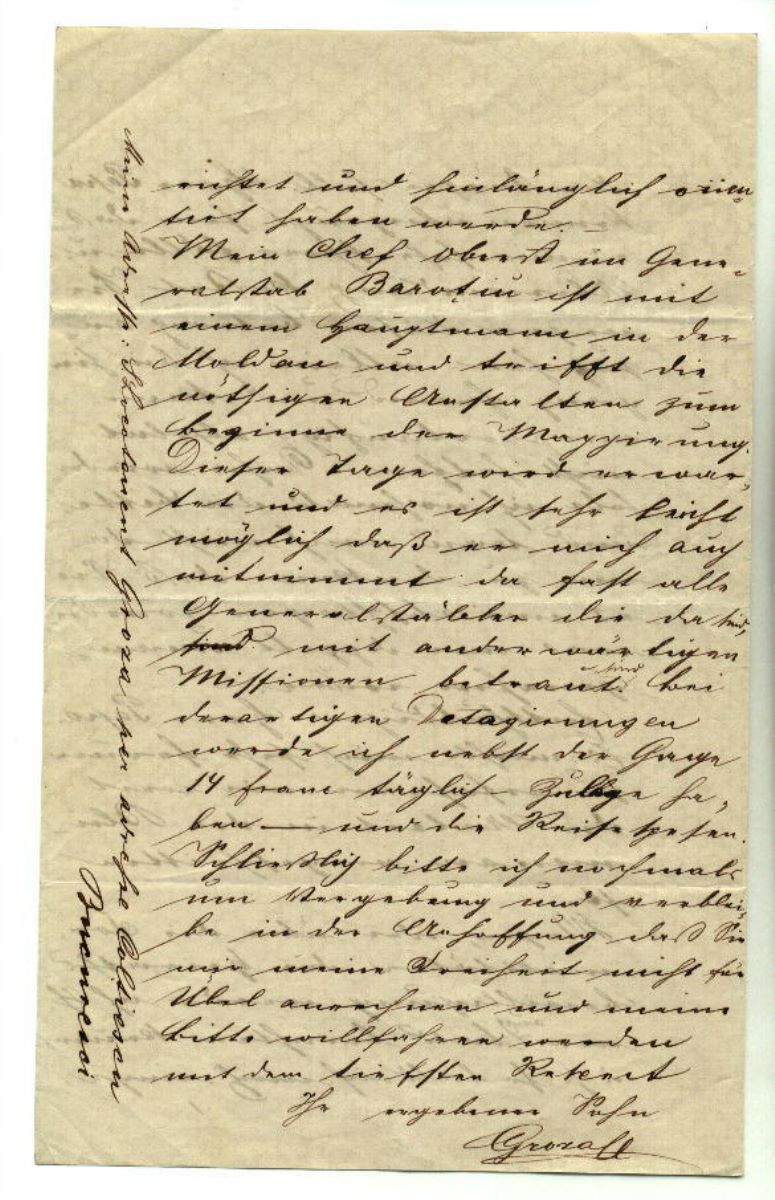 richtet und hinlänglich orien-
tirt haben werde. –
Mein Chef Oberst im Gene-
ralstab Baroțiu ist mit
einem Hauptmann in der
Moldau und trifft die
nöthigen Anstalten zum
beginne der Mappierung.
Dieser Tage wird erwar-
tet und es ist sehr leicht
möglich daß er mich auch
mitnimmt da fast alle
Generalstäbler die da sind,
sind mit anderwärtigen
Missionen betraut sind. bei
derartigen Detagierungen
werde ich nebst der Gage
14 franc täglich – Zulage ha-
ben — und die Reisespesen.
Schließlich bitte ich nochmals
um Vergebung und verblei-
be in der Anhoffung daß Sie
mir meine Freiheit nicht für
Übel anrechnen und meine
bitte willfahren werden
mit dem tiefsten Respect
Ihr ergebener Sohn
Groza
Meine Adresse: Groza per adresse Colțiescu
Bucuresci